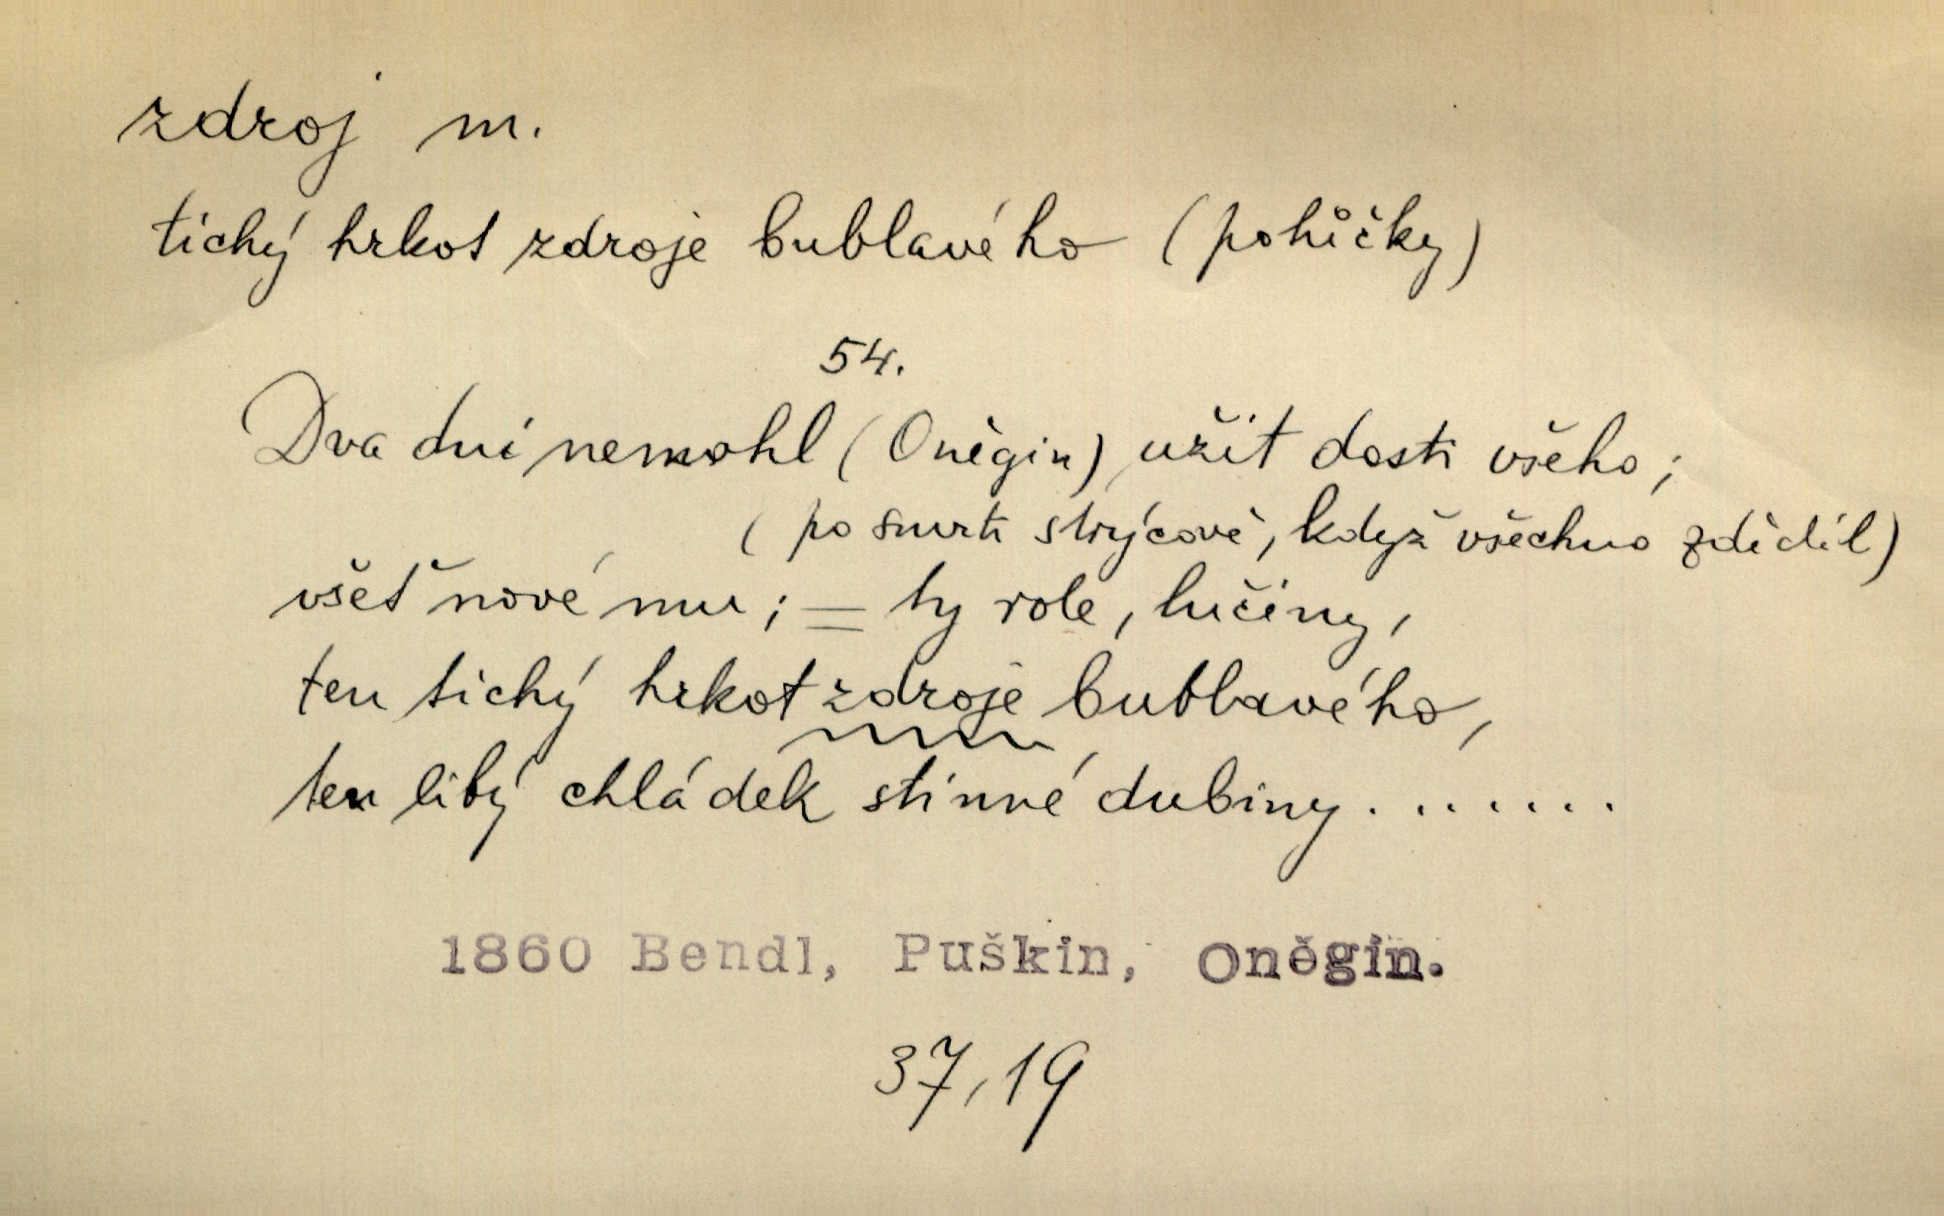 zdroj m.
tichý hrkot zdroje bublavého (pohůčky)
54.
Dva dni nemohl (Oněgin) užit dosti všeho;
(po smrti strýcově, když všechno zdědil)
všeť nové mu; = ty role, lučiny,
ten tichý hrkot zdroje bublavého,
ten libý chládek stinné dubiny.......
1860 Bendl, Puškin, Oněgin.
37,19